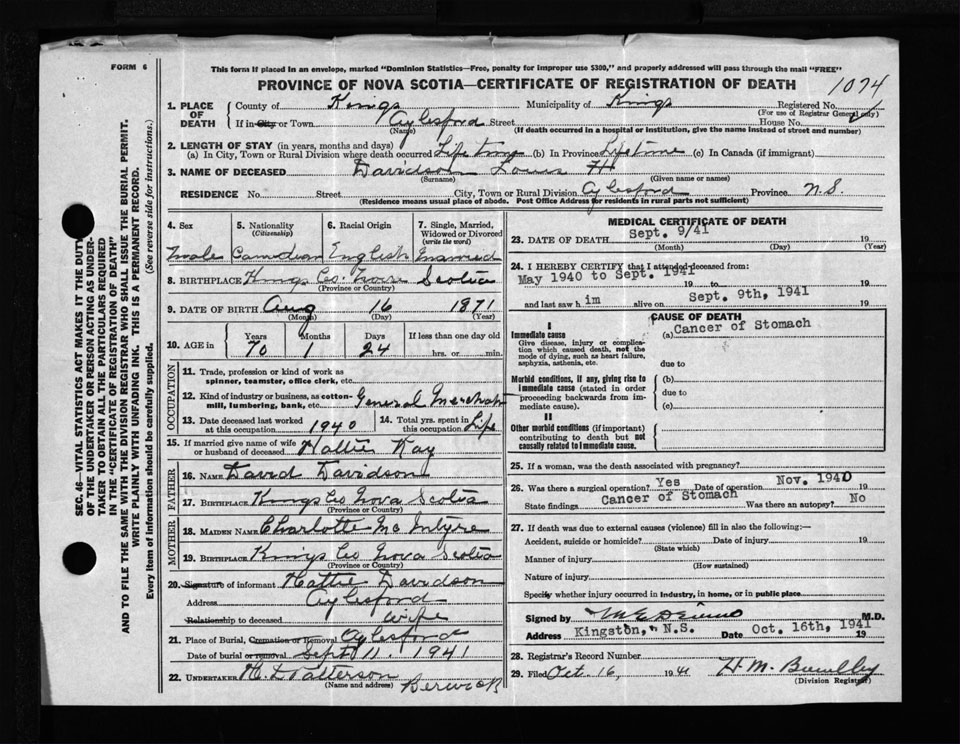 FORM 6
This form if placed in an envelope, marked "Dominion Statistics—Free, penalty for improper use $300," and properly addressed will pass through the mail "FREE"
PROVINCE OF NOVA SCOTIA—CERTIFICATE OF REGISTRATION OF DEATH 1074
1. PLACE OF DEATH
County of Kings Municipality of Kings Registered No.
(For use of Registrar General only)
If in City or Town Aylesford Street House No.
(Name) (If death occurred in a hospital or institution, give the name instead of street and number)
2. LENGTH OF STAY (in years, months and days)
(a) In City, Town or Rural Division where death occurred Life time (b) In Province Lifetime (c) In Canada (if immigrant)
3. NAME OF DECEASED Davidson Louis H
(Surname) (Given name or names)
RESIDENCE No. Street City, Town or Rural Division Aylesford Province N.S.
(Residence means usual place of abode. Post Office Address for residents in rural parts not sufficient)
4. Sex 5. Nationality (Citizenship) 6. Racial Origin 7. Single, Married, Widowed or Divorced (write the word)
Male Canadian English Married
8. BIRTHPLACE Kings Co. Nova Scotia
(Province or Country)
9. DATE OF BIRTH Aug 16 1871
(Month) (Day) (Year)
10. AGE in Years Months Days If less than one day old
70 1 24 hrs. or min.
OCCUPATION
11. Trade, profession or kind of work as spinner, teamster, office clerk, etc.
12. Kind of industry or business, as cotton-mill, lumbering, bank, etc. General Merchant
13. Date deceased last worked at this occupation 1940 14. Total yrs. spent in this occupation Life
15. If married give name of wife or husband of deceased Hattie Kay
FATHER
16. NAME David Davidson
17. BIRTHPLACE Kings Co Nova Scotia
(Province or Country)
MOTHER
18. MAIDEN NAME Charlotte McIntyre
19. BIRTHPLACE Kings Co Nova Scotia
(Province or Country)
20. Signature of informant Hattie Davidson
Address Aylesford
Relationship to deceased wife
21. Place of Burial, Cremation or Removal Aylesford
Date of burial or removal Sept 11. 1941
22. UNDERTAKER H. L Patterson
(Name and address) Berwick
MEDICAL CERTIFICATE OF DEATH
23. DATE OF DEATH Sept. 9/41 19
(Month) (Day) (Year)
24. I HEREBY CERTIFY that I attended deceased from:
May 1940 to Sept. 1941
19 to 19
and last saw him alive on Sept. 9th, 1941 19
CAUSE OF DEATH
I
Immediate cause (a) Cancer of Stomach
Give disease, injury or complication which caused death, not the mode of dying, such as heart failure, asphyxia, asthenia, etc.
due to
Morbid conditions, if any, giving rise to immediate cause (stated in order proceeding backwards from immediate cause).
(b)
due to
(c)
II
Other morbid conditions (if important) contributing to death but not causally related to immediate cause.
25. If a woman, was the death associated with pregnancy?
26. Was there a surgical operation? Yes Date of operation Nov. 1940 19
State findings Cancer of Stomach Was there an autopsy? No
27. If death was due to external causes (violence) fill in also the following:—
Accident, suicide or homicide? Date of injury 19
(State which)
Manner of injury
(How sustained)
Nature of injury
Specify whether injury occurred in Industry, in home, or in public place
Signed by M.D.
Address Kingston, N.S. Date Oct. 16th, 1941 19
28. Registrar's Record Number
29. Filed Oct 16, 1941 H. M.
(Division Registrar)
SEC. 46—VITAL STATISTICS ACT MAKES IT THE DUTY
OF THE UNDERTAKER OR PERSON ACTING AS UNDER-
TAKER TO OBTAIN ALL THE PARTICULARS REQUIRED
IN THE "CERTIFICATE OF REGISTRATION OF DEATH"
AND TO FILE THE SAME WITH THE DIVISION REGISTRAR WHO SHALL ISSUE THE BURIAL PERMIT.
WRITE PLAINLY WITH UNFADING INK. THIS IS A PERMANENT RECORD.
Every item of information should be carefully supplied. (See reverse side for instructions.)